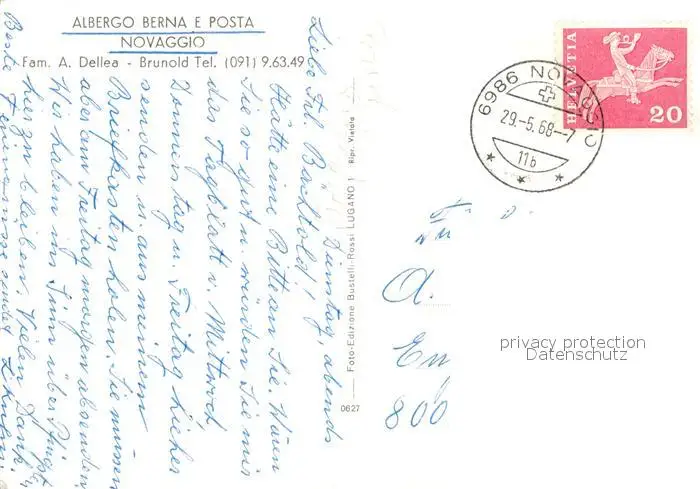 ALBERGO BERNA E POSTA
NOVAGGIO
Fam. A. Dellea - Brunold Tel. (091) 9.63.49
Dienstag, abends
Liebe Frl. Bächtold!
Hätte eine Bitte an Sie. Wären
Sie so gut u. würden Sie mir
das Tagblatt v. Mittwoch
Donnerstag u. Freitag hieher
senden u. aus meinem
Briefkasten holen. Sie müssen
aber am Freitag morgen absenden
Wir haben im Sinn über Pfingst.
hier zu bleiben. Vielen Dank
Beste
Foto-Edizione Bustelli-Rossi LUGANO 1 Ripr. Vietata
0627
HELVETIA
20
6986 NOVAGGIO
29.-5.68--7
11b
A.
En
800
privacy protection
Datenschutz